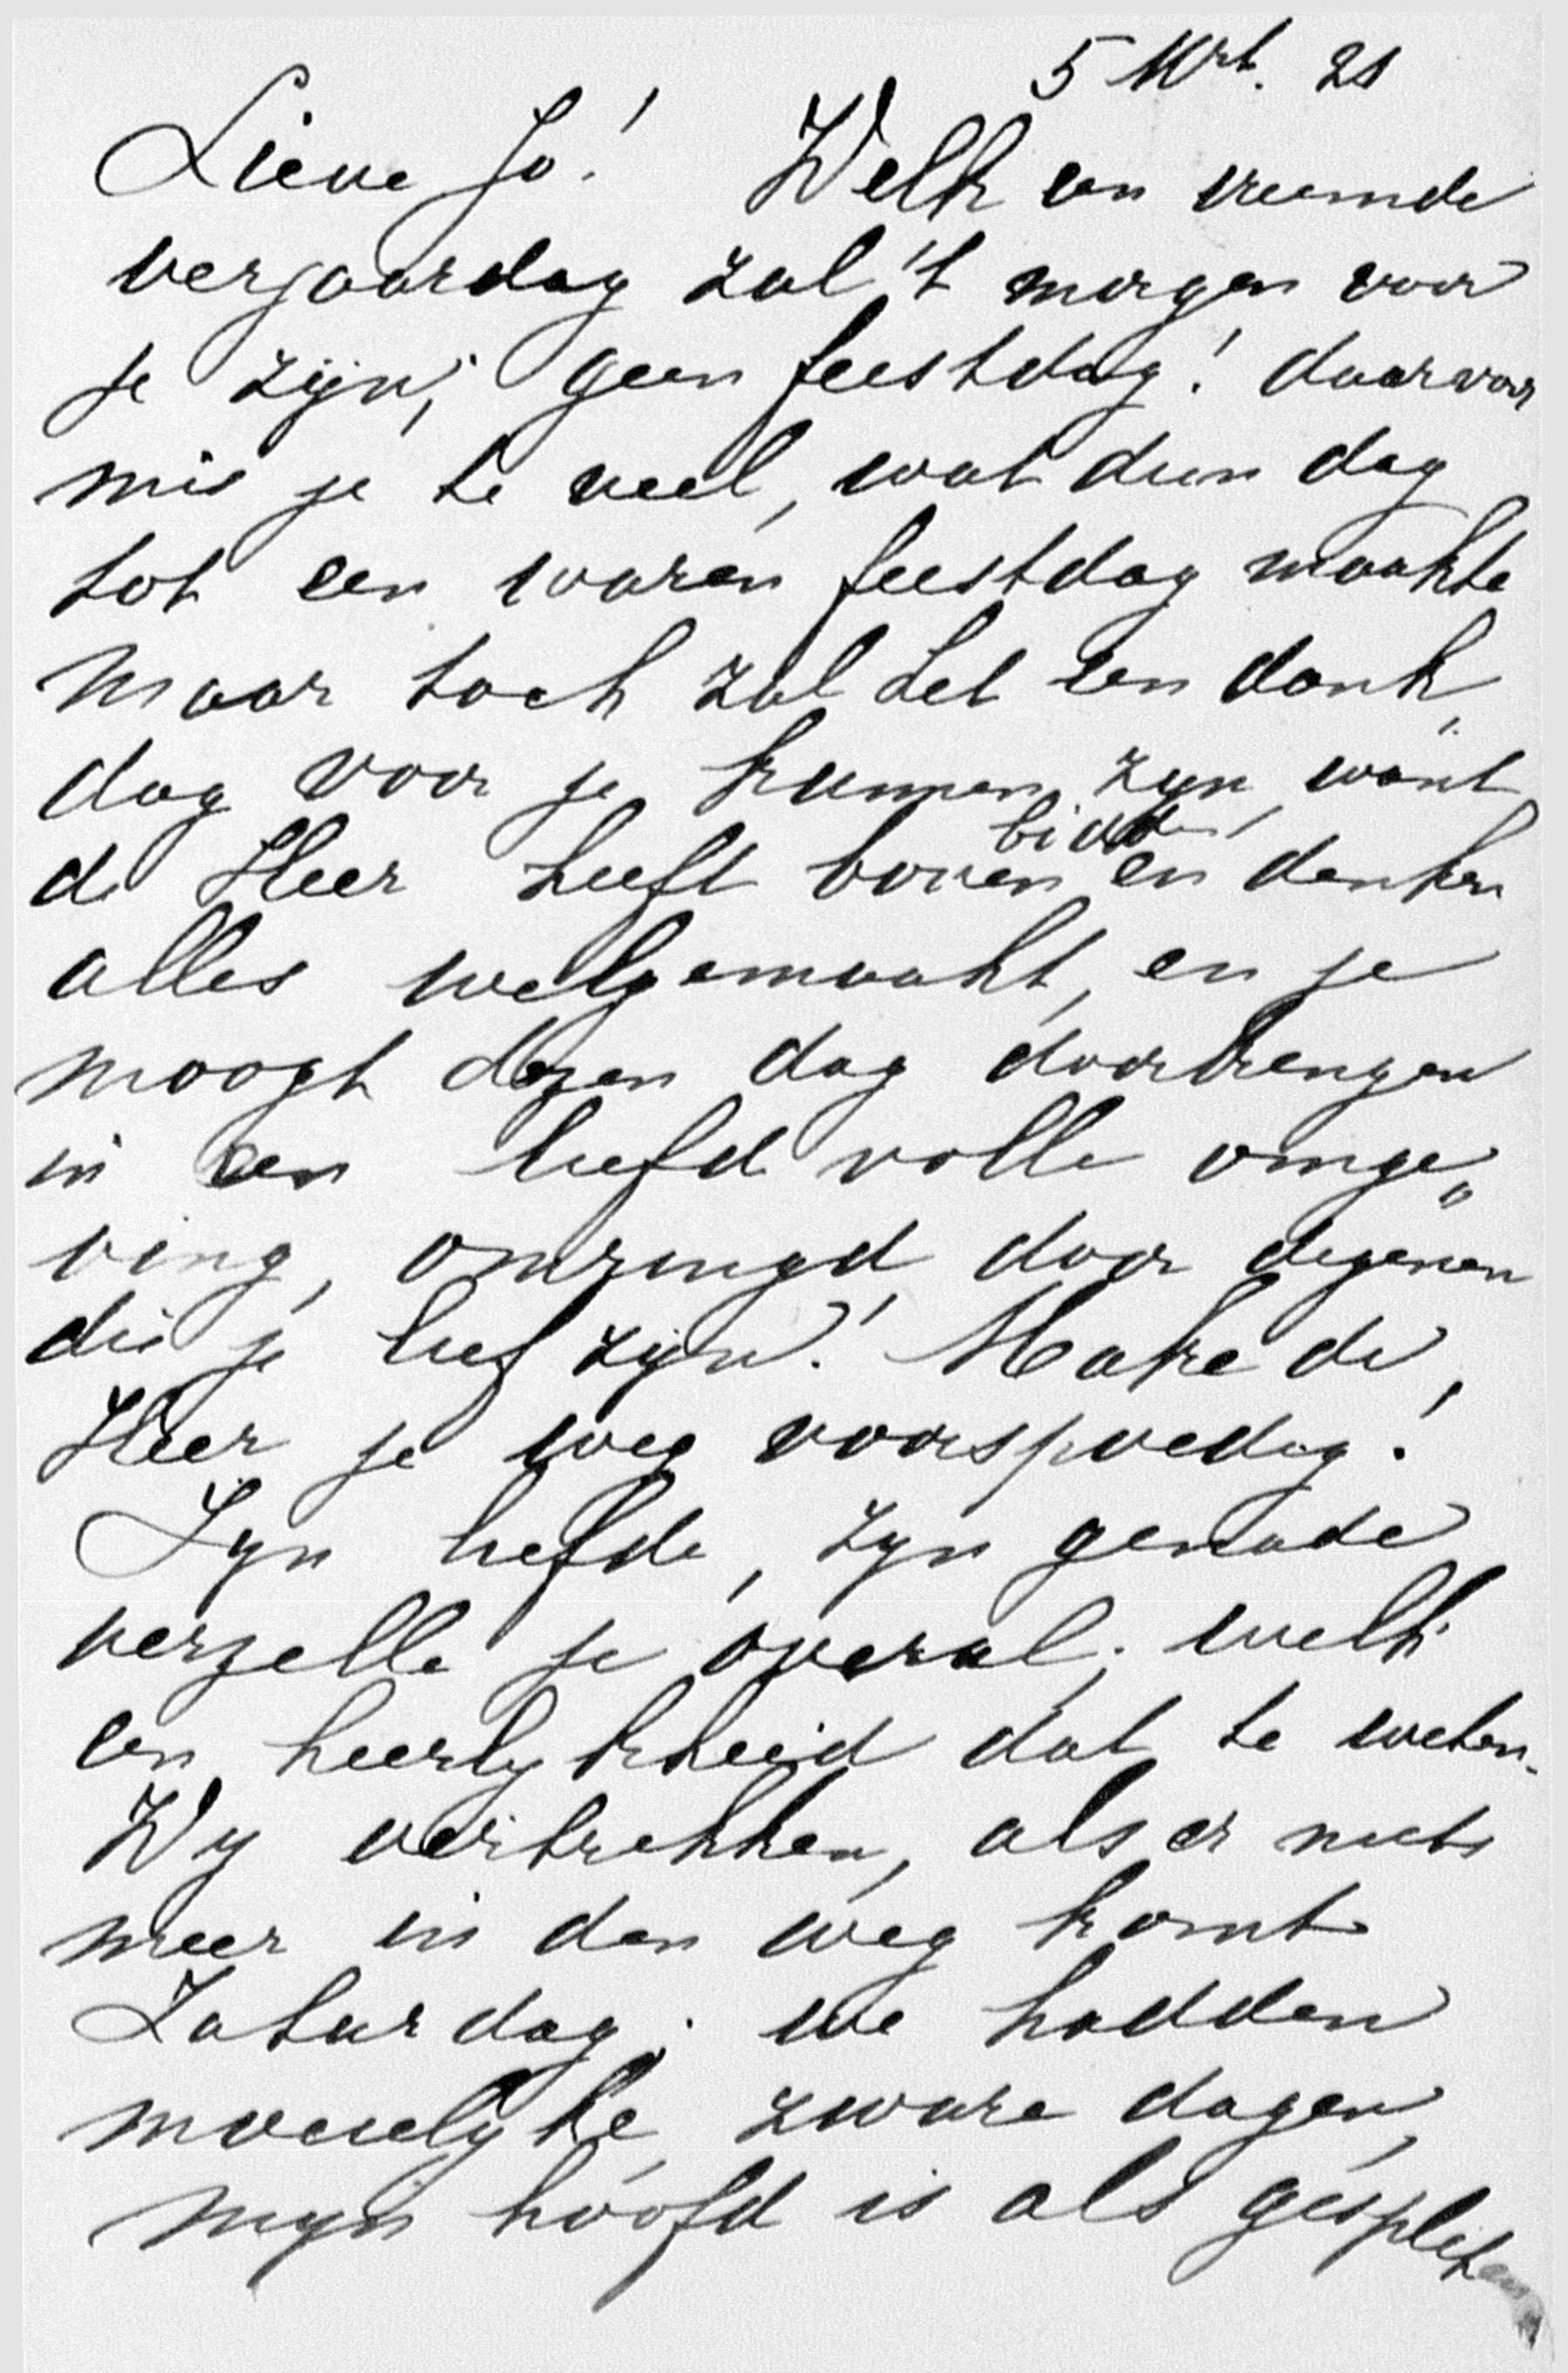 5 Mrt. 21
Lieve Jo! Welk een vreemde
verjaardag zal 't morgen voor
je zijn; geen feestdag! daarvoor
mis je te veel, wat dien dag
tot een waren feestdag maakte
maar toch zal het een dank„
dag voor je kunnen zyn, want
bidden
de Heer heeft boven en denken
alles welgemaakt, en je
moogt dezen dag doorbrengen
in een liefd volle omge„
ving, omringd door degenen
die je lief zijn! Make de
Heer je weg voorspoedig!
Zyn liefde, zyn genade
verzelle je overal; welk
een heerlykheid dat te weten.
Wy vertrekken, als er niets
meer in den weg komt
Zaturdag; we hadden
moeielyke, zware dagen,
myn hoofd is als gespleten